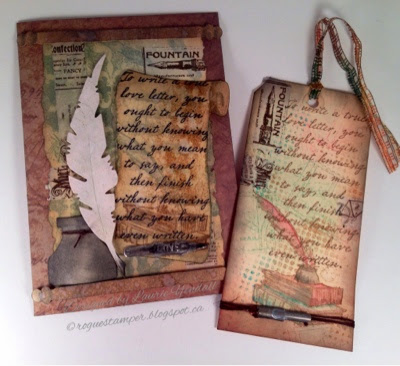 confection
FANCY
FOUNTAIN
To write a
love letter, you
ought to begin
without knowing
what you mean
to say, and
then finish
without knowing
what you have
even written.
FOUNTAIN
to write a true
love letter, you
ought to begin
without knowing
what you mean
to say, and
then finish
without knowing
what you have
even written.
by Laurie
©roguestamper.blogspot.ca